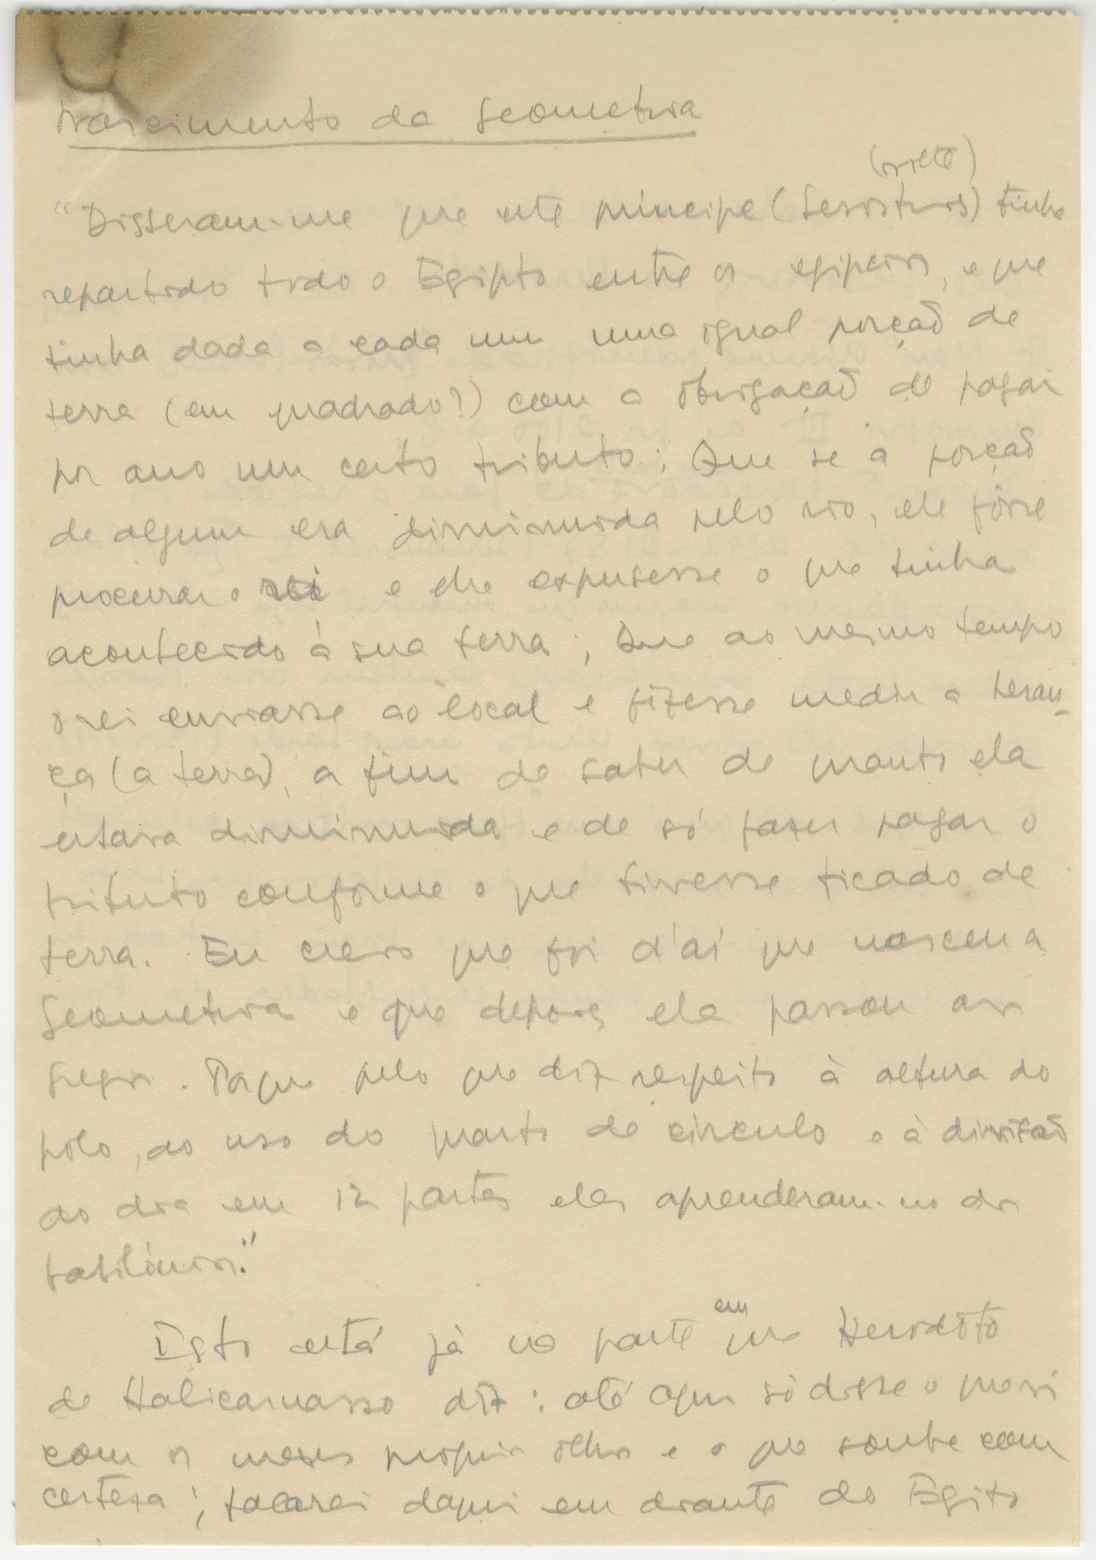 Nascimento da Geometria
"Disseram-me que este principe (Sesostris) tinha
repartido todo o Egipto entre os egipcios, e que
tinha dado a cada um uma igual porção de
terra (em quadrado?) com a obrigação de pagar
por ano um certo tributo; Que se a porção
de algum era diminuida pelo rio, ele fosse
procurar o rei e lhe expusesse o que tinha
acontecido à sua terra; Que ao mesmo tempo
o rei enviasse ao local e fizesse medir a heran-
ça (a terra), a fim de saber de quanto ela
estava diminuida e de só fazer pagar o
tributo conforme o que tivesse ficado de
terra. Eu creio que foi d'aí que nasceu a
Geometria e que depois ela passou aos
gregos. Porque pelo que diz respeito à altura do
pólo, ao uso do quarto de circulo e à divizão
do dia em 12 partes eles aprenderam-no dos
babilónios."
Isto está já na parte em que Herodóto
de Halicarnasso diz: até aqui só disse o que vi
com os meus proprios olhos e o que soube com
certeza; falarei daqui em diante do Egito